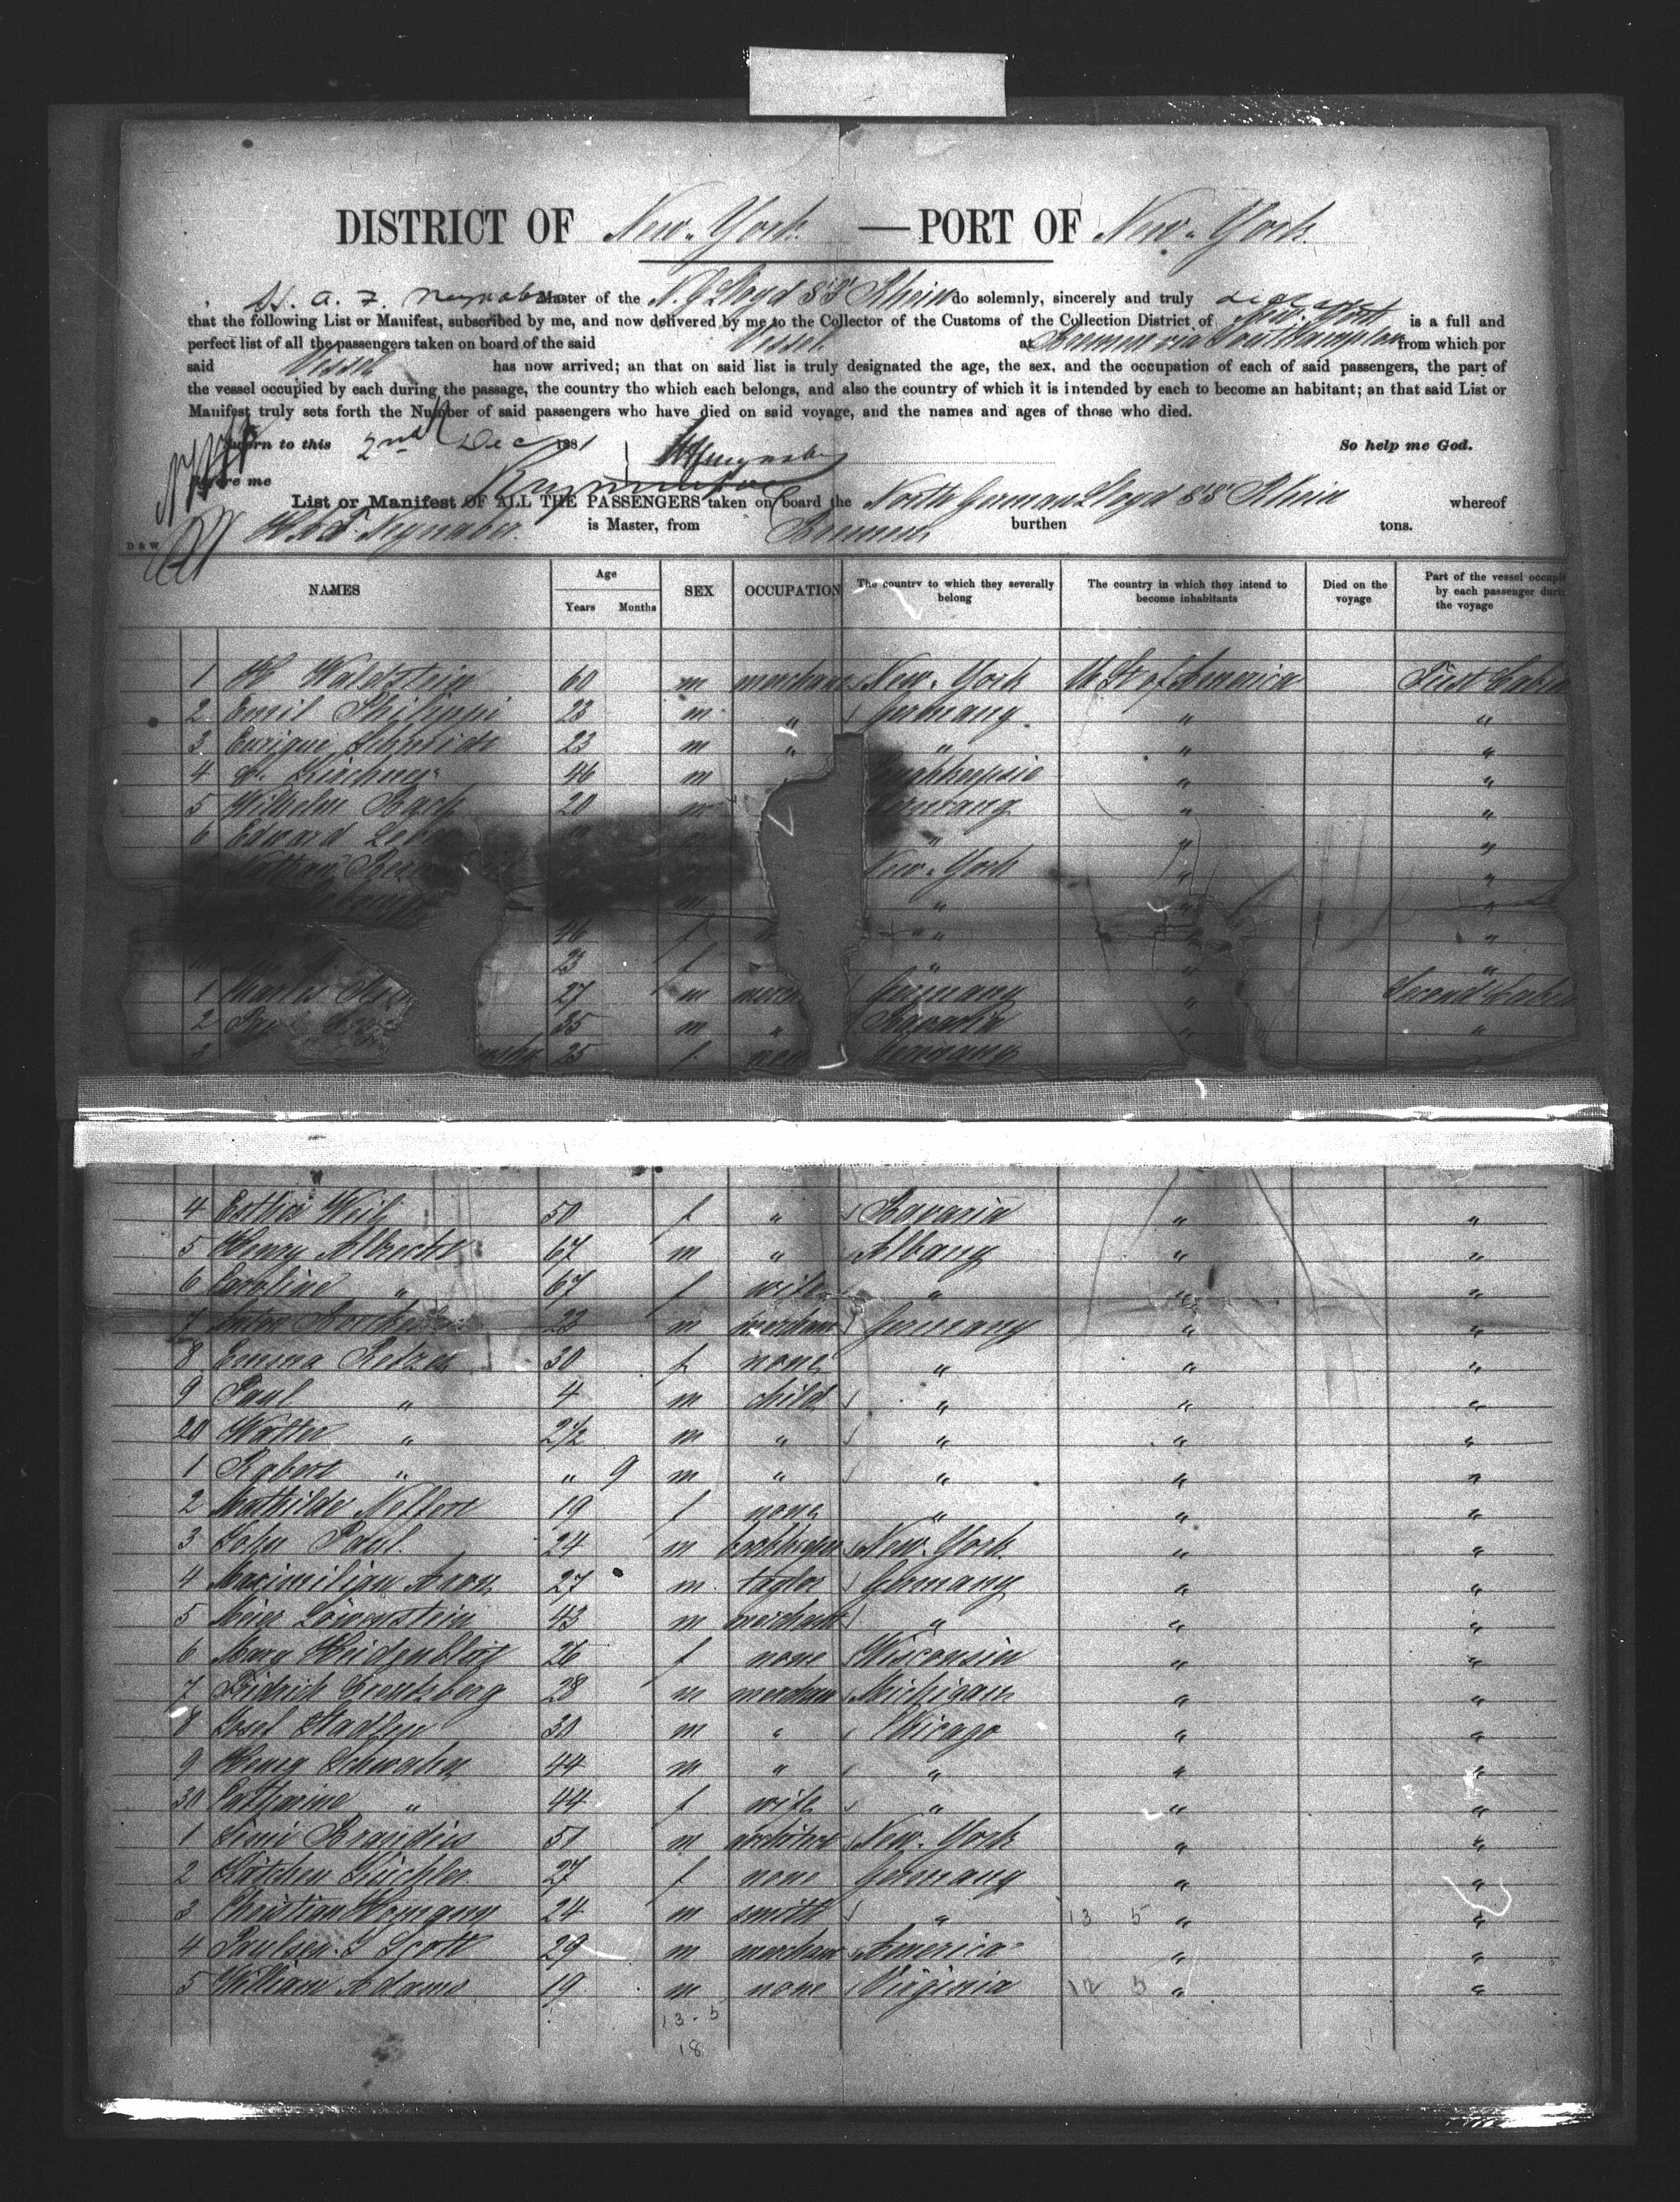 DISTRICT OF New-York — PORT OF New-York
H. A. F. Neynaber Master of the N. G. Lloyd SS Rhein do solemnly, sincerely and truly declare
that the following List or Manifest, subscribed by me, and now delivered by me to the Collector of the Customs of the Collection District of New-York is a full and
perfect list of all the passengers taken on board of the said Vessel at Bremen via Southampton from which por
said Vessel has now arrived; an that on said list is truly designated the age, the sex, and the occupation of each of said passengers, the part of
the vessel occupied by each during the passage, the country tho which each belongs, and also the country of which it is intended by each to become an habitant; an that said List or
Manifest truly sets forth the Number of said passengers who have died on said voyage, and the names and ages of those who died.
Sworn to this 2nd Dec 1881 So help me God.
before me
List or Manifest OF ALL THE PASSENGERS taken on board the North German Lloyd SS Rhein whereof
H. A. F. Neynaber. is Master, from Bremen burthen tons.
D & W
NAMES Age Years Months SEX OCCUPATION The country to which they severally belong The country in which they intend to become inhabitants Died on the voyage Part of the vessel occupi by each passenger durin the voyage
1 Waldstein 60 m merchant New-York U. St. of America First Cabin
2 Emil Philippi 23 m " Germany " "
3 Enrique Schmidt 23 m " " " "
4 Kirchner 46 m oughkeepsie " "
5 Wilhelm Bach 20 m Germany " "
6 Edward " " "
Nathan New-York " "
m " " "
46 f " " "
23 f " " "
1 Charles 27 m merch Germany " Second Cabin
2 35 m " Bavaria " "
3 25 f non Germany
4 Esther Weil 50 f " Bavaria " "
5 Henry Albrecht 67 m " Albany " "
6 Caroline " 67 f wife " " "
7 Anton 23 m merchant Germany " "
8 Emma Retzer 30 f none " " "
9 Paul " 4 m child " " "
20 Walter " 2 1/2 m " " " "
1 Robert " " 9 m " " " "
2 Mathilde Neffert 19 f none " " "
3 John Paul. 24 m bookkeeper New-York " "
4 Maximilian Aron 27 m taylor Germany " "
5 Meier Löwenstein 43 m merchant " " "
6 Marg Heidenblut 26 f none Wisconsin " "
7 Fridrich Creutzberg 28 m merchant Michigan " "
8 Josef Stadler 30 m " Chicago " "
9 Henry Schwahn 44 m " " " "
30 Catharine " 44 f wife " " "
1 Brandeis 51 m architect New-York " "
2 Käthchen Küchler 27 f none Germany " "
3 Christian 24 m smith " 13 5 " "
4 Paulsen G Scott 29 m merchant America " "
5 William Adams 19 m none Virginia 12 5 " "
13-5
18